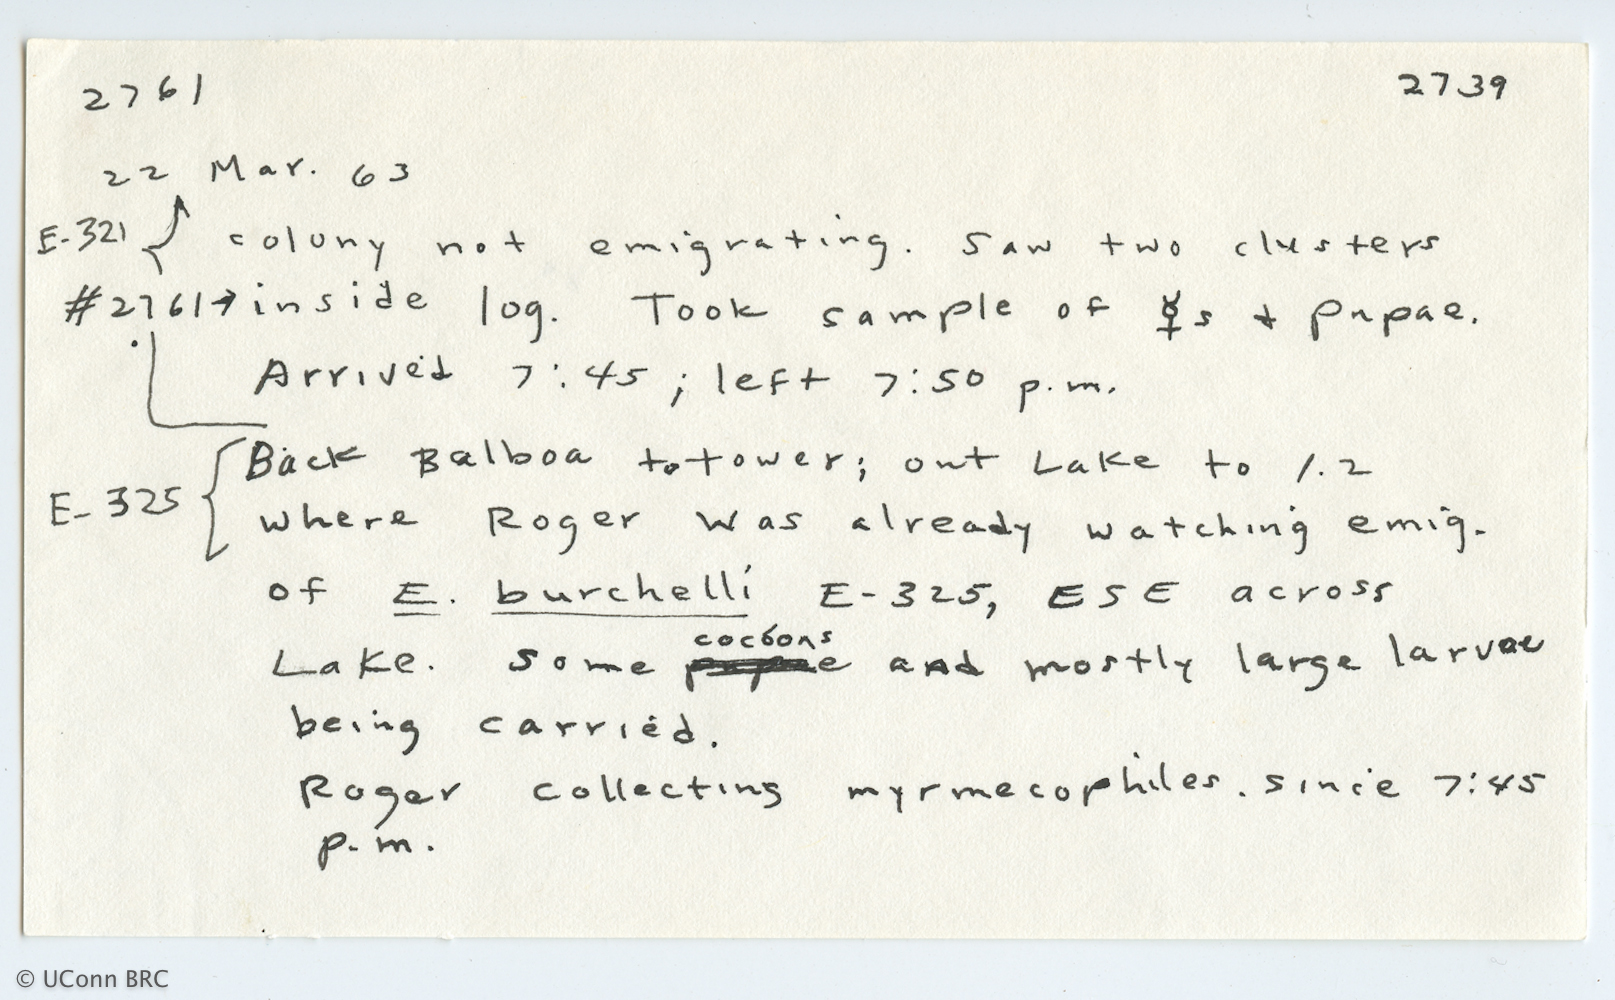 2761 2739
22 Mar. 63
E-321 { colony not emigrating. Saw two clusters
#2761→ inside log. Took sample of ☿s + pupae.
Arrived 7:45; left 7:50 p.m.
Back Balboa to tower; out Lake to 1.2
E-325 { where Roger was already watching emig.
of E. burchelli E-325, ESE across
Lake. Some pupae cocoons and mostly large larvae
being carried.
Roger collecting myrmecophiles. since 7:45
p.m.
© UConn BRC